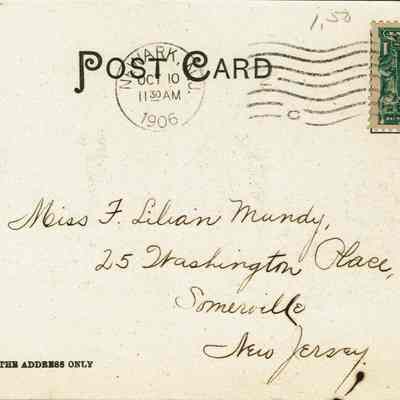 1,50
POST CARD
NEWARK, N.J.
OCT 10
11 30 AM
1906
C
Miss F. Lilian Mundy,
25 Washington Place,
Somerville
New Jersey.
THE ADDRESS ONLY